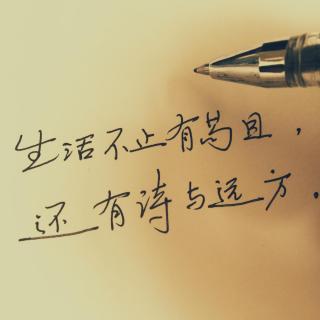 生活不止有苟且，
还有诗与远方。